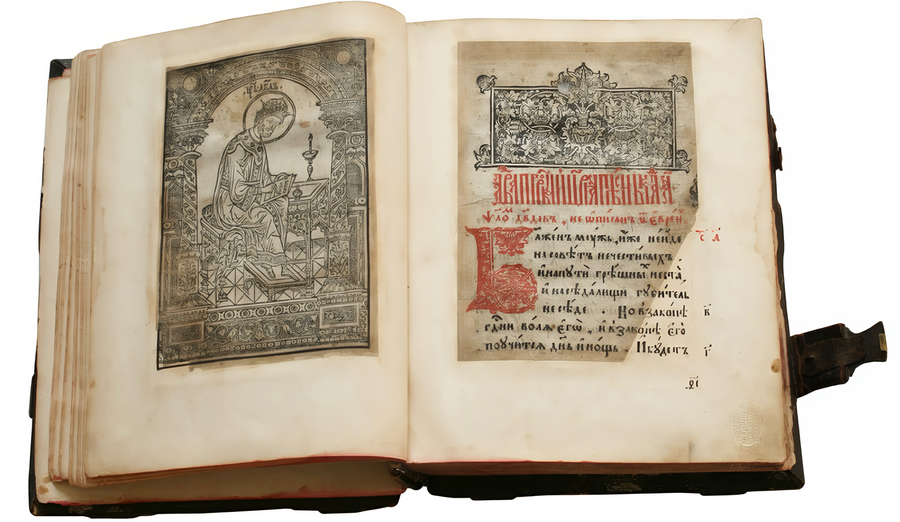 Црь Дв҃дъ
ѱало҇м дв҃двъ , не ѿписанъ ѿ еврей
Блаженъ мѹжъ , иже нейде
на совѣтъ нечестивыхъ ,
и на пѹти грѣшны҇х не ста ,
и на сѣдалищи гѹбитель
не сѣде . Но в законѣ
гд҃ни волѧ єгѡ , и в законѣ єгѡ
поѹчитсѧ дн҃ь и нощь . И бѹдетъ
а҃
в҃
г҃